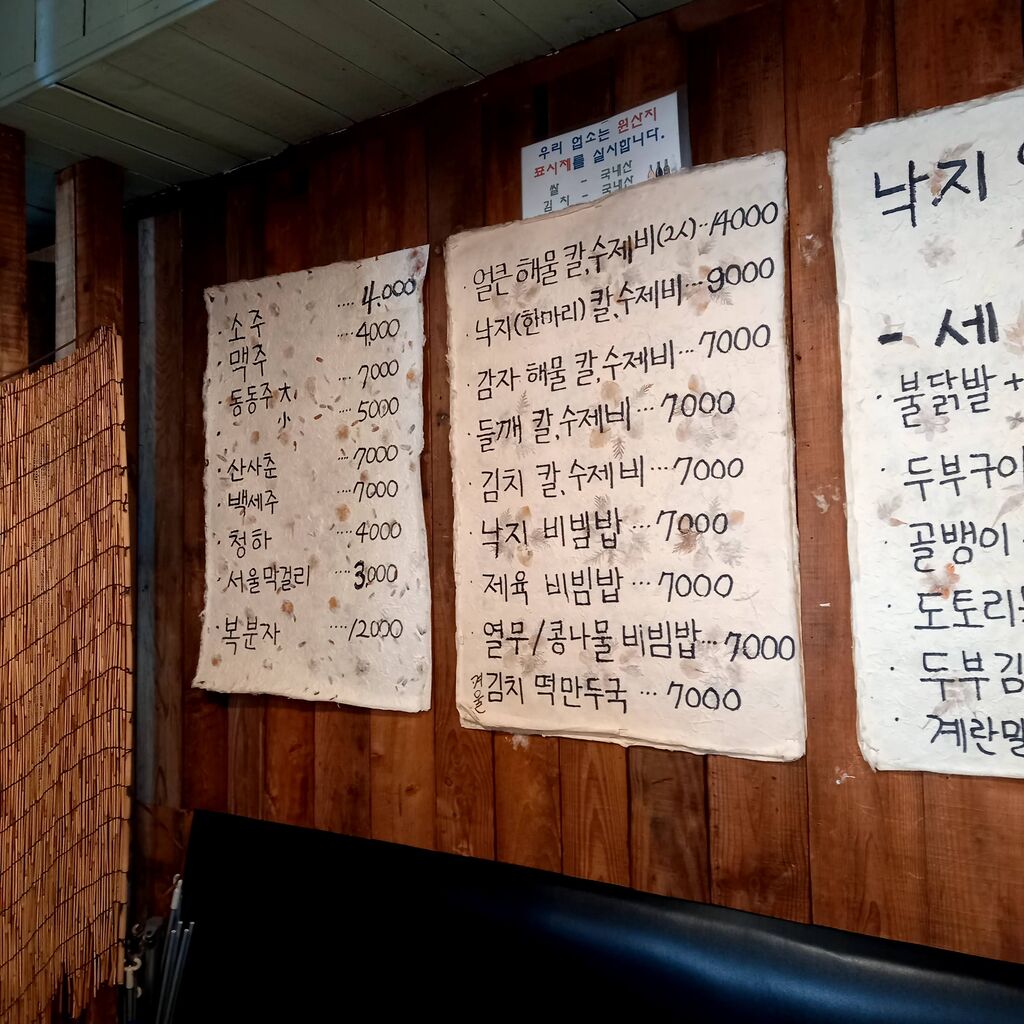 우리 업소는 원산지
표시제를 실시합니다.
쌀 - 국내산
김치 - 국내산
· 소주 .... 4.000
· 맥주 .... 4000
· 동동주 大 ... 7000
小 ... 5000
· 산사춘 .... 7000
· 백세주 .... 7000
· 청하 .... 4000
· 서울막걸리 .... 3000
· 복분자 .... 12000
· 얼큰 해물 칼,수제비(2人)..14000
· 낙지(한마리) 칼,수제비...9000
· 감자 해물 칼,수제비...7000
· 들깨 칼,수제비...7000
· 김치 칼,수제비...7000
· 낙지 비빔밥...7000
· 제육 비빔밥...7000
· 열무/콩나물 비빔밥...7000
겨울 김치 떡만두국...7000
낙지
- 세
· 불닭발 +
· 두부구이
· 골뱅이
· 도토리
· 두부김
· 계란말